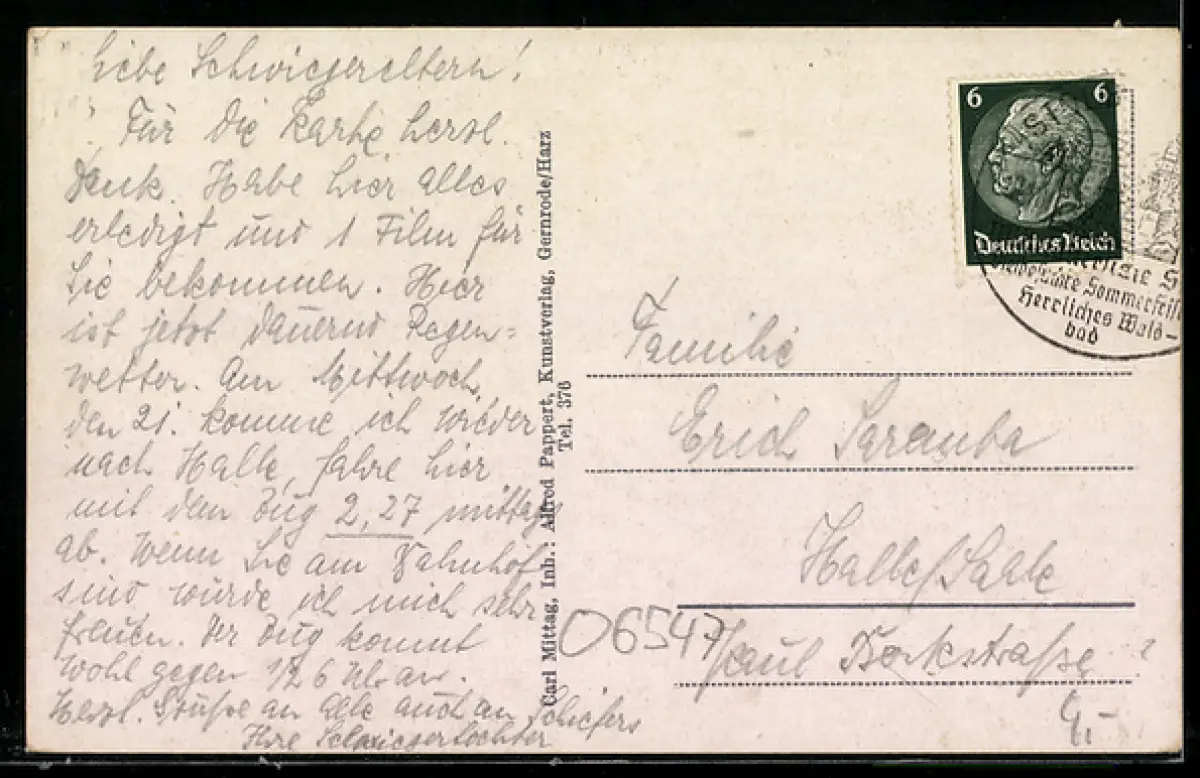 Liebe Schwiegereltern!
Für die Karte herzl.
Dank. Habe hier alles
erledigt und 1 Film für
Sie bekommen. Hier
ist jetzt dauernd Regen=
wetter. Am Mittwoch,
den 21. komme ich wieder
nach Halle, fahre hier
mit dem Zug 2,27 mittags
ab. Wenn Sie am Bahnhof
sind würde ich mich sehr
freuen. Der Zug kommt
wohl gegen 1/2 6 Uhr an.
Herzl. Grüße an alle auch an Schiefers
Ihre Schwiegertochter
Carl Mittag, Inh.: Alfred Pappert, Kunstverlag, Gernrode/Harz
Tel. 376
6 6
Deutsches Reich
Sommerfris
Herrliches Wald-
bad
Familie
Erich
Halle/Saale
06547
Paul
4,-